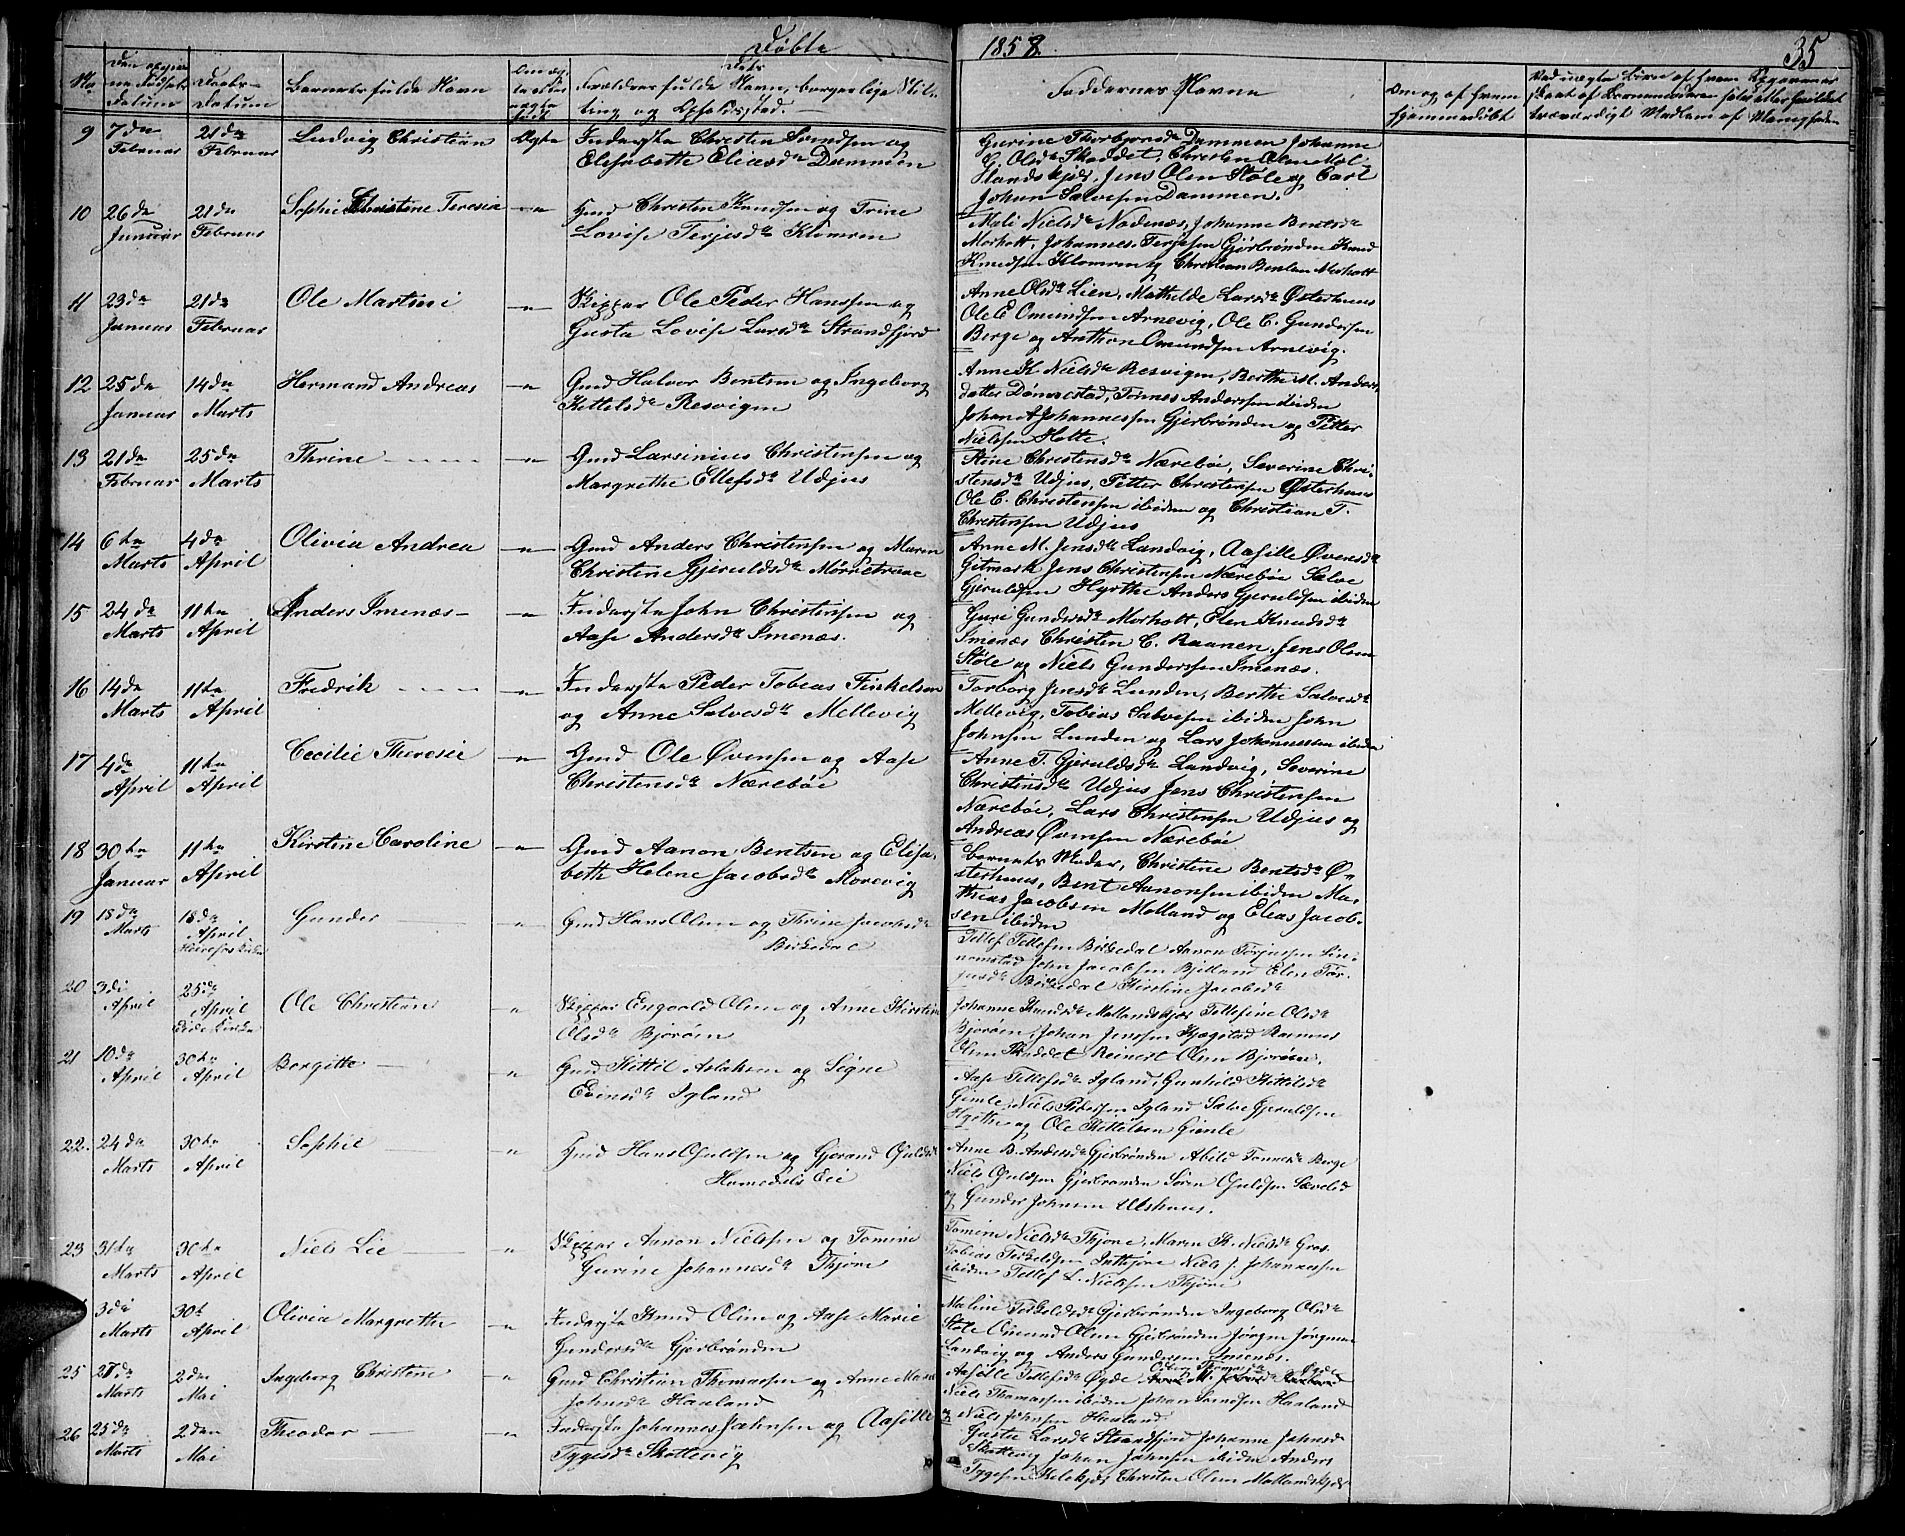 Døbte
1858.
35
No
Barnets fulde Navn
Forældres fulde Navn, borgerlige Stil-
ling og Opholdssted.
Faddernes Navne
Om og af hvem
hjemmedøbt
9
7de
Februar
21de
Februar
Ludvig Christian
Ægte
Inderste Christen Svendsen og
Elisabetha Eliasdr Dammen
Gurine Thorbjørnsdr Dammen Johanne
Olsdr Skaddet, Christen Olsen Mol-
landskjær, Jens Olsen Støle og Carl
Johan Salvesen Dammen.
10
26de
Januar
21de
Februar
Sophie Christine Teresia
Gmd Christen Knudsen og Trine
Lovise Terjesdr Klomren
Mali Nielsdr Nodenæs, Johanne Bentsdr
Morholt, Johannes Terjesen Gjerbrønden Knud
Knudsen Klomren og Christian Bentsen Morholt
11
23de
Januar
21de
Februar
Ole Martini
Skipper Ole Peder Hanssen og
Gusta Lovise Larsdr Strandfjord
Anne Olsdr Lien, Mathilde Larsdr Østerhuus
Ole E Omundsen Arnevig, Ole C. Gundersen
Berge og Anthon Omundsen Arnevig.
12
25de
Januar
14de
Marts
Hermand Andreas
Gmd Halvor Bentsen og Ingeborg
Kittelsdr Resvigen
Anne K Nielsdr Resvigen, Berthe M. Anders-
datter Dønnestad, Tønnes Anderssen ibiden
Johan A Johannessen Gjerbrønden og Petter
Nielsen Holte.
13
21de
Februar
25de
Marts
Thrine
Gmd Larsinius Christensen og
Margrethe Ellefsdr Udjus
Stine Christensdr Nærebøe, Severine Chri-
stensdr Udjus, Petter Christensen Østerhuus
Ole C. Christensen ibiden og Christian T.
Christensen Udjus
14
6te
Marts
4de
April
Olivia Andrea
Gmd Anders Christensen og Maren
Christine Gjeruldsdr
Anne M. Jensdr Landvig, Aasille Øvensdr
Gitmark Jens Christensen Nærebøe Salve
Gjeruldsen Hyrthe Anders Gjeruldsen ibiden
15
24de
Marts
11te
April
Anders Imenæs
Inderste John Christensen og
Aase Andersdr Imenæs.
Guri Gundersdr Morholt, Elen Knudsdr
Imenæs Christen C. Raanen, Jens Olsen
Støle og Niels Gunderssen Imenæs.
16
14de
Marts
11te
April
Fredrik
Inderste Peder Tobias Finkelsen
og Anne Salvesdr Mellevig
Torborg Jensdr Lunden, Berthe Salvesdr
Mellevig, Tobias Salvesen ibiden John
Johnsen Lunden og Lars Johannessen ibiden
17
4de
April
11te
April
Cecilie Theresie
Gmd Ole Øvensen og Aase
Christensdr Nærebøe
Anne T. Gjeruldsdr Landvig, Severine
Christensdr Udjus Jens Christensen
Nærebøe, Lars Christensen Udjus og
Andreas Øvensen Nærebøe
18
30te
Januar
11te
April
Kirstine Caroline
Gmd Aanon Bentsen og Elisa-
beth Helene Jacobsdr Morevig
Barnets Moder, Christine Bentsdr Ø-
sterhuus, Bent Aanonsen ibiden Ma-
thias Jacobsen Molland og Elias Jacob-
sen ibiden
19
18de
Marts
18de
April
Gunder
Gmd Hans Olsen og Thrine Jacobsdr
Birkedal
Tellef Tellefsen Birkedal Aanon Torjussen
John Jacobsen Bjelland Elen Tor-
jusdr Birkedal Kirstine Jacobsdr
20
3die
April
25de
April
Ole Christian
Skipper Engvold Olsen og Anne Kirstine
Olsdr Bjorøen
Johanne Knudsdr Mollandskjær Tellefine Olsdr
Bjorøen, Johan Jenssen Hægstad Rasmus
Olsen Skaddet Reinert Olsen Bjorøen.
21
10de
April
30te
April
Borgitte
Gmd Kittil Aslaksen og Signe
Evensdr Igland
Aase Tellefsdr Igland, Gunhild Kittilsdr
Gimle, Niels Pedersen Igland Salve Gjeruldsen
Hyrthe og Ole Kittilsen Gimle
22.
24de
Marts
30te
April
Sophie
Gmd Hans Osuldsen og Gjerand Osuldsdr
Homedals Eie
Anne B. Andersdr Gjerbrønden Abild Tønnesdr Berge
Niels Osuldsen Gjerbrønden Søren Osuldsen
og Gunder Johnsen Ulshuus.
23
31te
Marts
30te
April
Niels Lie
Skipper Aanon Nielsen og Tomine
Gurine Johannesdr Thjøre
Tomine Nielsdr Thjøre, Maren K. Nielsdr Gros
Tobias Terkeldsen Indthjøre Niels J. Johannessen
ibiden Tellef L. Nielsen Thjøre
3die
Marts
30te
April
Olivia Margrethe
Inderste Knud Olsen og Aase Marie
Gundersdr Gjerbrønden
Maline Terkeldsdr Gjerbrønden Ingeborg Olsdr
Støle Omund Olsen Gjerbrønden Jørgen Jørgensen
Landvig og Anders Gundersen Imenæs.
25
27de
Marts
2den
Mai
Ingeborg Christine
Gmd Christian Thomassen og Anne Marie
Johnsdr Haaland
Aasille Tellefsdr Øgde Thomasdr Øgde
Niels Thomassen ibiden Johan Svendsen Haaland
og Niels Johnsen Haaland
26
25de
Marts
2den
Mai
Theodor
Inderste Johannes Johnsen og Aasille
Tygesdr Skottevig
Gustie Larsdr Strandfjord Johanne Johnsdr
Skottevig Johan Johnsen ibiden Anders
Tygesen Christen Olsen Mollandskjær